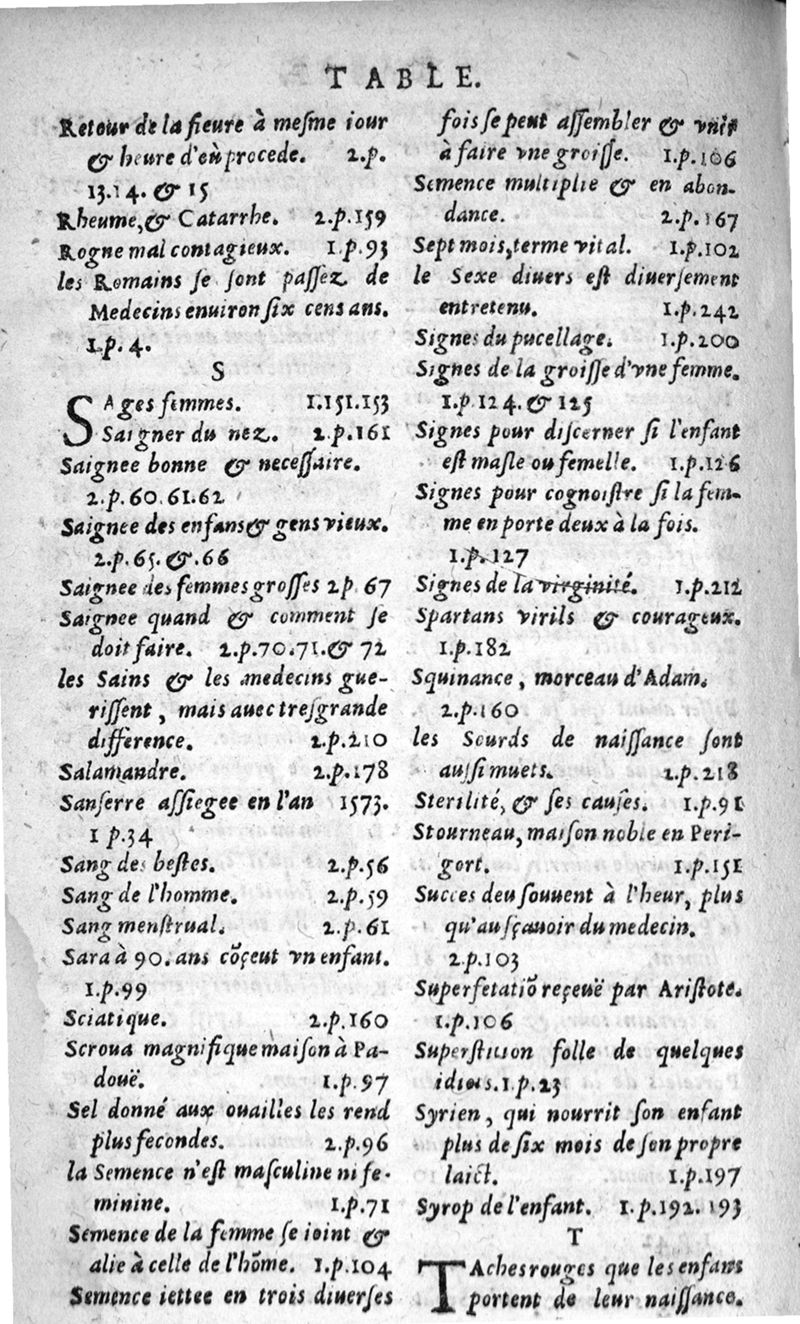 TABLE.
Retour de la fieure à mesme iour
& heure d'où procede. 2.p.
13.14. & 15
Rheume, & Catarrhe. 2.p.159
Rogne mal contagieux. 1.p.93
les Romains se sont passez de
Medecins enuiron six cens ans.
1.p.4.
S
SAges femmes. 1.151.153
Saigner du nez. 2.p.161
Saignee bonne & necessaire.
2.p.60.61.62
Saignee des enfans & gens vieux.
2.p.65.&.66
Saignee des femmes grosses 2p.67
Saignee quand & comment se
doit faire. 2.p.70.71.& 72
les Sains & les medecins gue-
rissent, mais auec tresgrande
difference. 2.p.210
Salamandre. 2.p.178
Sanserre assiegee en l'an 1573.
1 p.34
Sang des bestes. 2.p.56
Sang de l'homme. 2.p.59
Sang menstrual. 2.p.61
Sara à 90. ans cõçeut vn enfant.
1.p.99
Sciatique. 2.p.160
Scroua magnifique maison à Pa-
douë. 1.p.97
Sel donné aux ouailles les rend
plus fecondes. 2.p.96
la Semence n'est masculine ni fe-
minine. 1.p.71
Semence de la femme se ioint &
alie à celle de l'hõme. 1.p.104
Semence iettee en trois diuerses
fois se peut assembler & vnir
à faire vne groisse. 1.p.106
Semence multiplie & en abon-
dance. 2.p.167
Sept mois, terme vital. 1.p.102
le Sexe diuers est diuersement
entretenu. 1.p.242
Signes du pucellage. 1.p.200
Signes de la groisse d'vne femme.
1.p.124.& 125
Signes pour discerner si l'enfant
est masle ou femelle. 1.p.126
Signes pour cognoistre si la fem-
me en porte deux à la fois.
1.p.127
Signes de la virginité. 1.p.212
Spartans virils & courageux.
1.p.182
Squinance, morceau d'Adam.
2.p.160
les Sourds de naissance sont
aussi muets. 2.p.218
Sterilité, & ses causes. 1.p.91
Stourneau, maison noble en Peri-
gort. 1.p.151
Succes deu souuent à l'heur, plus
qu'au sçauoir du medecin.
2.p.103
Superfetatiõ reçeuë par Aristote.
1.p.106
Superstition folle de quelques
idiots. 1.p.23
Syrien, qui nourrit son enfant
plus de six mois de son propre
laict. 1.p.197
Syrop de l'enfant. 1.p.192.193
T
TAches rouges que les enfans
portent de leur naissance.